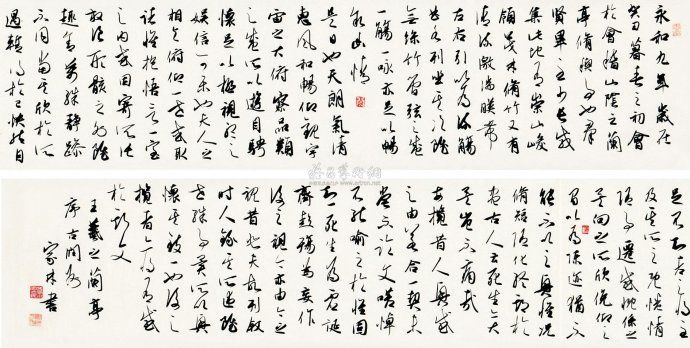 永和九年歲在
癸丑暮春之初會
於會稽山陰之蘭
亭脩禊事也群
賢畢至少長咸
集此地有崇山峻
領茂林脩竹又有
清流激湍映帶
左右引以為流觴
曲水列坐其次雖
無絲竹管弦之盛
一觴一詠亦足以暢
敘幽情
是日也天朗氣清
惠風和暢仰觀宇
宙之大俯察品類
之盛所以遊目騁
懷足以極視聽之
娛信可樂也夫人之
相與俯仰一世或取
諸懷抱悟言一室
之內或因寄所託
放浪形骸之外雖
趣舍萬殊靜躁
不同當其欣於所
遇暫得於己快然自
足不知老之將至
及其所之既惓情
隨事遷感慨係之
矣向之所欣俛仰之
間以為陳迹猶不
能不以之興懷況
脩短隨化終期於
盡古人云死生亦大
矣豈不痛哉
每攬昔人興感
之由若合一契未
嘗不臨文嗟悼
不能喻之於懷固
知一死生為虛誕
齊彭殤為妄作
後之視今亦由今之
視昔悲夫故列敘
時人錄其所述雖
世殊事異所以興
懷其致一也後之
攬者亦將有感
於斯文
王羲之蘭亭
序
書